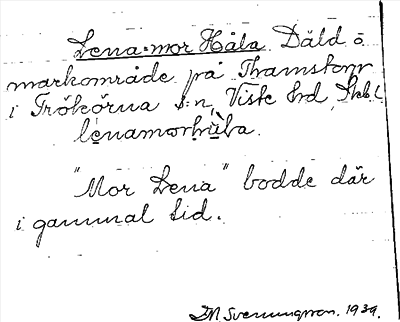 Lena-mor Håla Däld o.
markområde på Thamstorp
i Trökörna s:n, Viste hd, Skbl
lenamorhùla.
"Mor Lena" bodde där
i gammal tid.
D.N. Svenungsson. 1939.